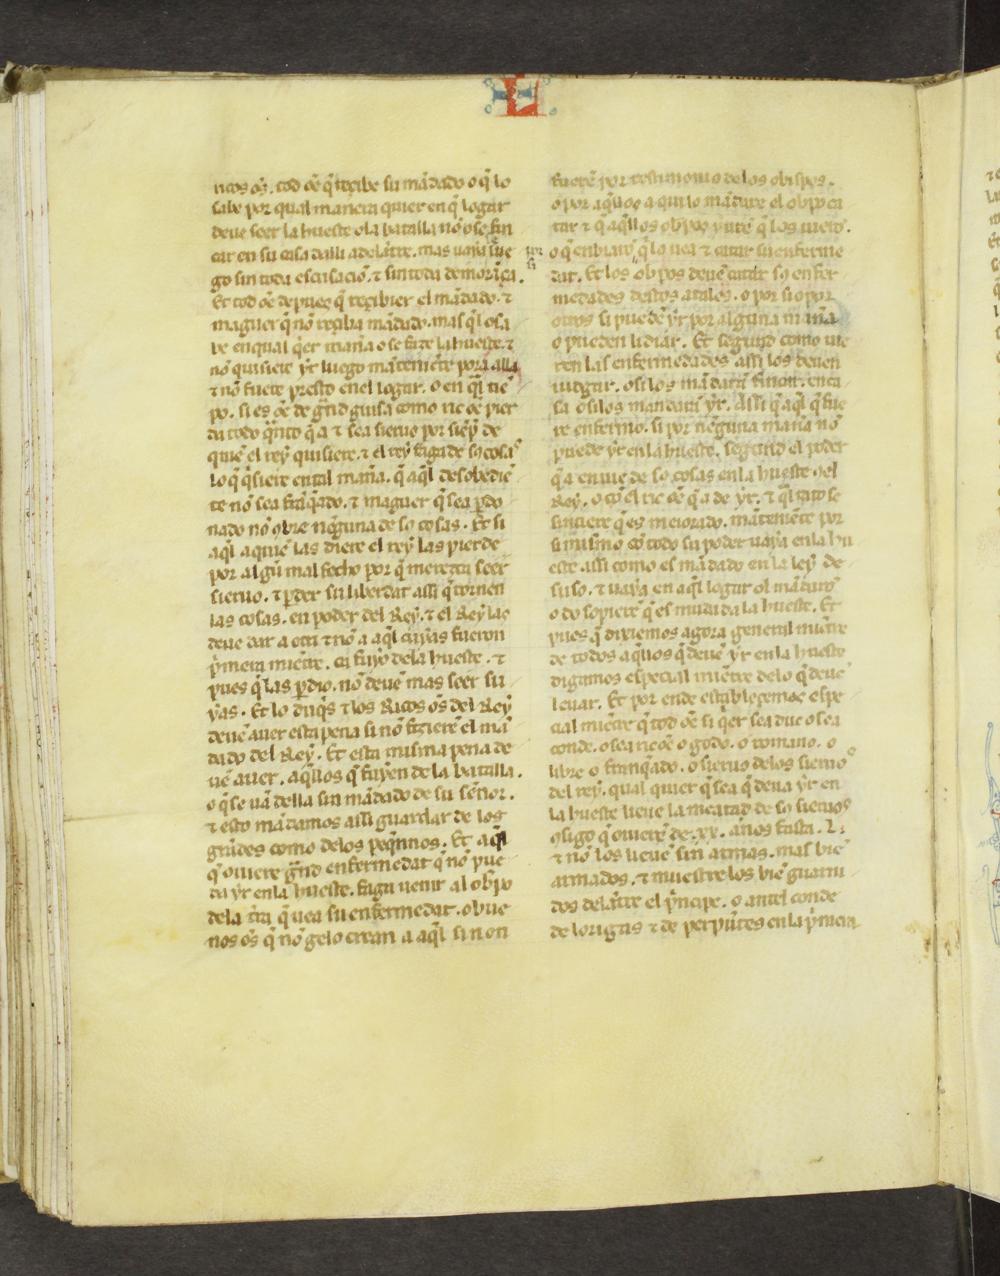 L
ricos os̃. tod oẽ q̃ reçibe su mãdado o q̃ lo
sabe por qual manera quier en q̃ logar
deue seer la hueste o la batalla nõ ose fin
car en su casa dalli adelãtre. mas uaya lue
go sin toda escusaciõ. ⁊ sin toda demorãça.
Et tod oẽ depues q̃ reçibier el mãdado. ⁊
maguer q̃ nõ reçiba mãdado. mas q̃l o sa
be en qual q̃er maña o se faze la hueste. ⁊
nõ quisiere yr luego mãteniẽte pora alla
⁊ nõ fuere presto en el logar. o en q̃l tiẽ
po. si es oẽ de grãd guisa como ric oẽ pier
da todo q̃nto q̃ a ⁊ sea sieruo por siẽp̃ de
quiẽ el rey quisiere. ⁊ el rey faga de so cosas
lo q̃ q̃siere en tal maña. q̃ aq̃l desobediẽ
te nõ sea frãq̃ado. ⁊ maguer q̃ sea p̱do
nado nõ cobre nĩguna de so cosas. Et si
aq̃l a quiẽ las diere el rey las pierde
por algũ mal fecho por q̃ merezca seer
sieruo. ⁊ p̱der su libertat assi q̃ tornen
las cosas. en poder del Rey. ⁊ el Rey las
deue dar a otri ⁊ nõ a aq̃l cuyas fueron
p̃mera miẽtre. ca fuyo de la hueste. ⁊
pues q̃ las p̱dio. nõ deuẽ mas seer su
yas. Et lo duq̃s ⁊ los Ricos os̃ del Rey
deuẽ auer esta pena si nõ fizierẽ el mã
dado del Rey. Et esta misma pena de
uẽ auer. aq̃llos q̃ fuyen de la batalla.
o q̃ se uã della sin mãdado de su señor.
⁊ esto mãdamos assi guardar de los
grãdes como de los peq̃nnos. Et aq̃l
q̃ ouiere grãd enfermedat q̃ nõ pue
da yr en la hueste. faga uenir al obp̃o
de la trã q̃ uea su enfermedat. o bue
nos os̃ q̃ nõ gelo crean a aq̃l si non
fuerẽ por testimonio de los obispos.
o por aq̃llos a qui lo mãdare el obp̃o ca
tar ⁊ q̃ aq̃llos obp̃os yurẽ q̃ los uierõ.
o q̃ enbiarẽ q̃ lo uea ⁊ catar su enferme
dat. Et los obp̃os deuẽ catar so enfer
medades destos atales. o por si o por
otros si puedẽ yr por alguna maña
o pueden lidiar. Et segund como uie
ren las enfermedades assi los deuen
iudgar. o si los mãdarã fincar. en ca
sa o si los mandarã yr. Assi q̃ aq̃l q̃ fue
re enfermo. si por nẽguna maña nõ
puede yr en la hueste. segund el poder
q̃ a enuie de so cosas en la hueste del
Rey. o cõ el ric oẽ q̃ a de yr. ⁊ q̃l tãto se
sintiere q̃ es meiorado. mãteniẽte por
si mismo cõ todo su poder uaya en la hu
este assi como es mãdado en la ley de
suso. ⁊ uaya en aq̃l logar ol mãdarõ
o do sopiere q̃ es mudada la hueste. Et
pues q̃ dixiemos agora general miẽtre
de todos aq̃llos q̃ deuẽ yr en la hueste
digamos espeçial miẽtre de lo q̃ deuẽ
leuar. Et por ende establecemos espe
cial miẽtre q̃ tod oẽ si q̃er sea duc o sea
conde. o sea ric oẽ o godo. o romano. o
libre o franq̃ado. o sieruo de los sieruos
del rey. qual quier q̃ sea q̃ deua yr en
la hueste lieue la meatad de so sieruos
cõsigo q̃ ouierẽ de .xx. años fasta .L.
⁊ nõ los lieuẽ sin armas. mas biẽ
armados. ⁊ muestre los biẽ guarni
dos delãtre el p̃ncipe. o antel conde
de lorigas ⁊ de perpũtes en la p̃mera